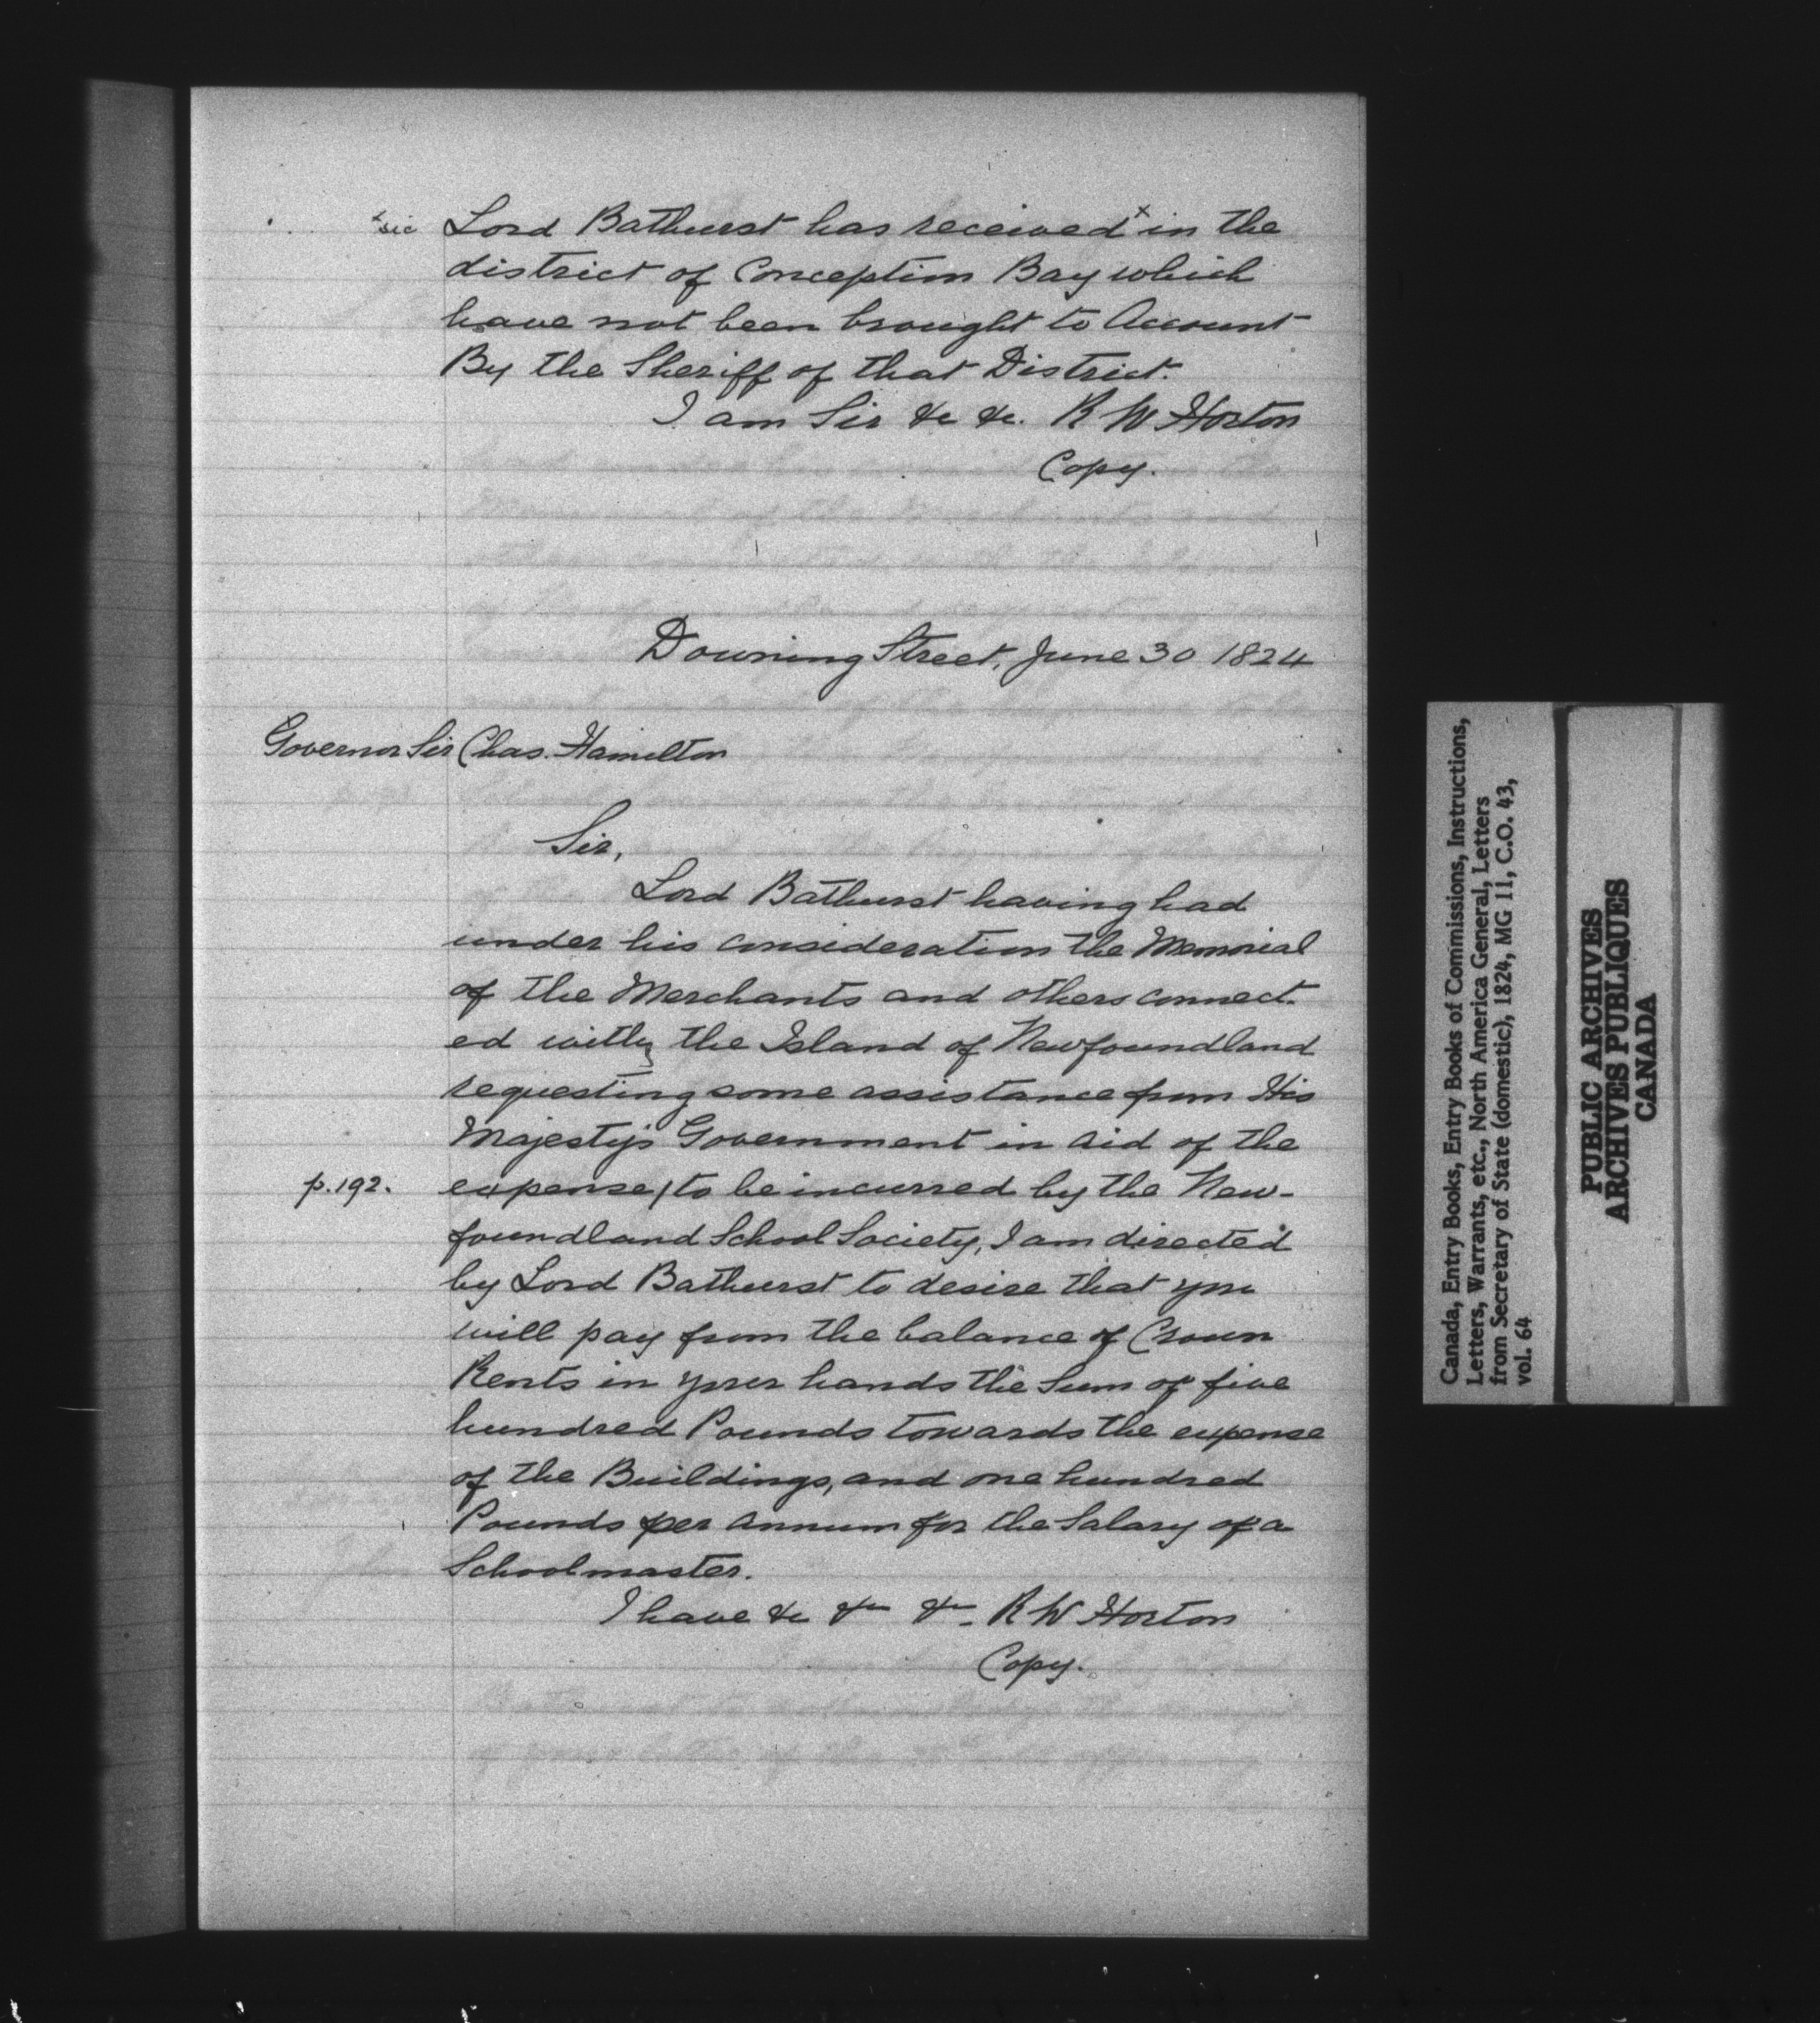 xsic Lord Bathurst has received x in the
district of Conception Bay which
have not been brought to Account
By the Sheriff of that District.
I am Sir &c &c. R W Horton
Copy.
Downing Street, June 30 1824
Governor Sir Chas. Hamilton
Sir,
Lord Bathurst having had
under his consideration the Memorial
of the Merchants and others connect-
ed with the Island of Newfoundland
requesting some assistance from His
Majesty's Government in aid of the
p.192. expense/to be incurred by the New-
foundland School Society, I am directed
by Lord Bathurst to desire that you
will pay from the balance of Crown
Rents in your hands the Sum of five
hundred Pounds towards the expense
of the Buildings, and one hundred
Pounds per annum for the Salary of a
Schoolmaster.
I have &c &c &c. R W Horton
Copy.
Canada, Entry Books, Entry Books of Commissions, Instructions,
Letters, Warrants, etc., North America General, Letters
from Secretary of State (domestic), 1824, MG 11, C.O. 43,
vol. 64
PUBLIC ARCHIVES
ARCHIVES PUBLIQUES
CANADA